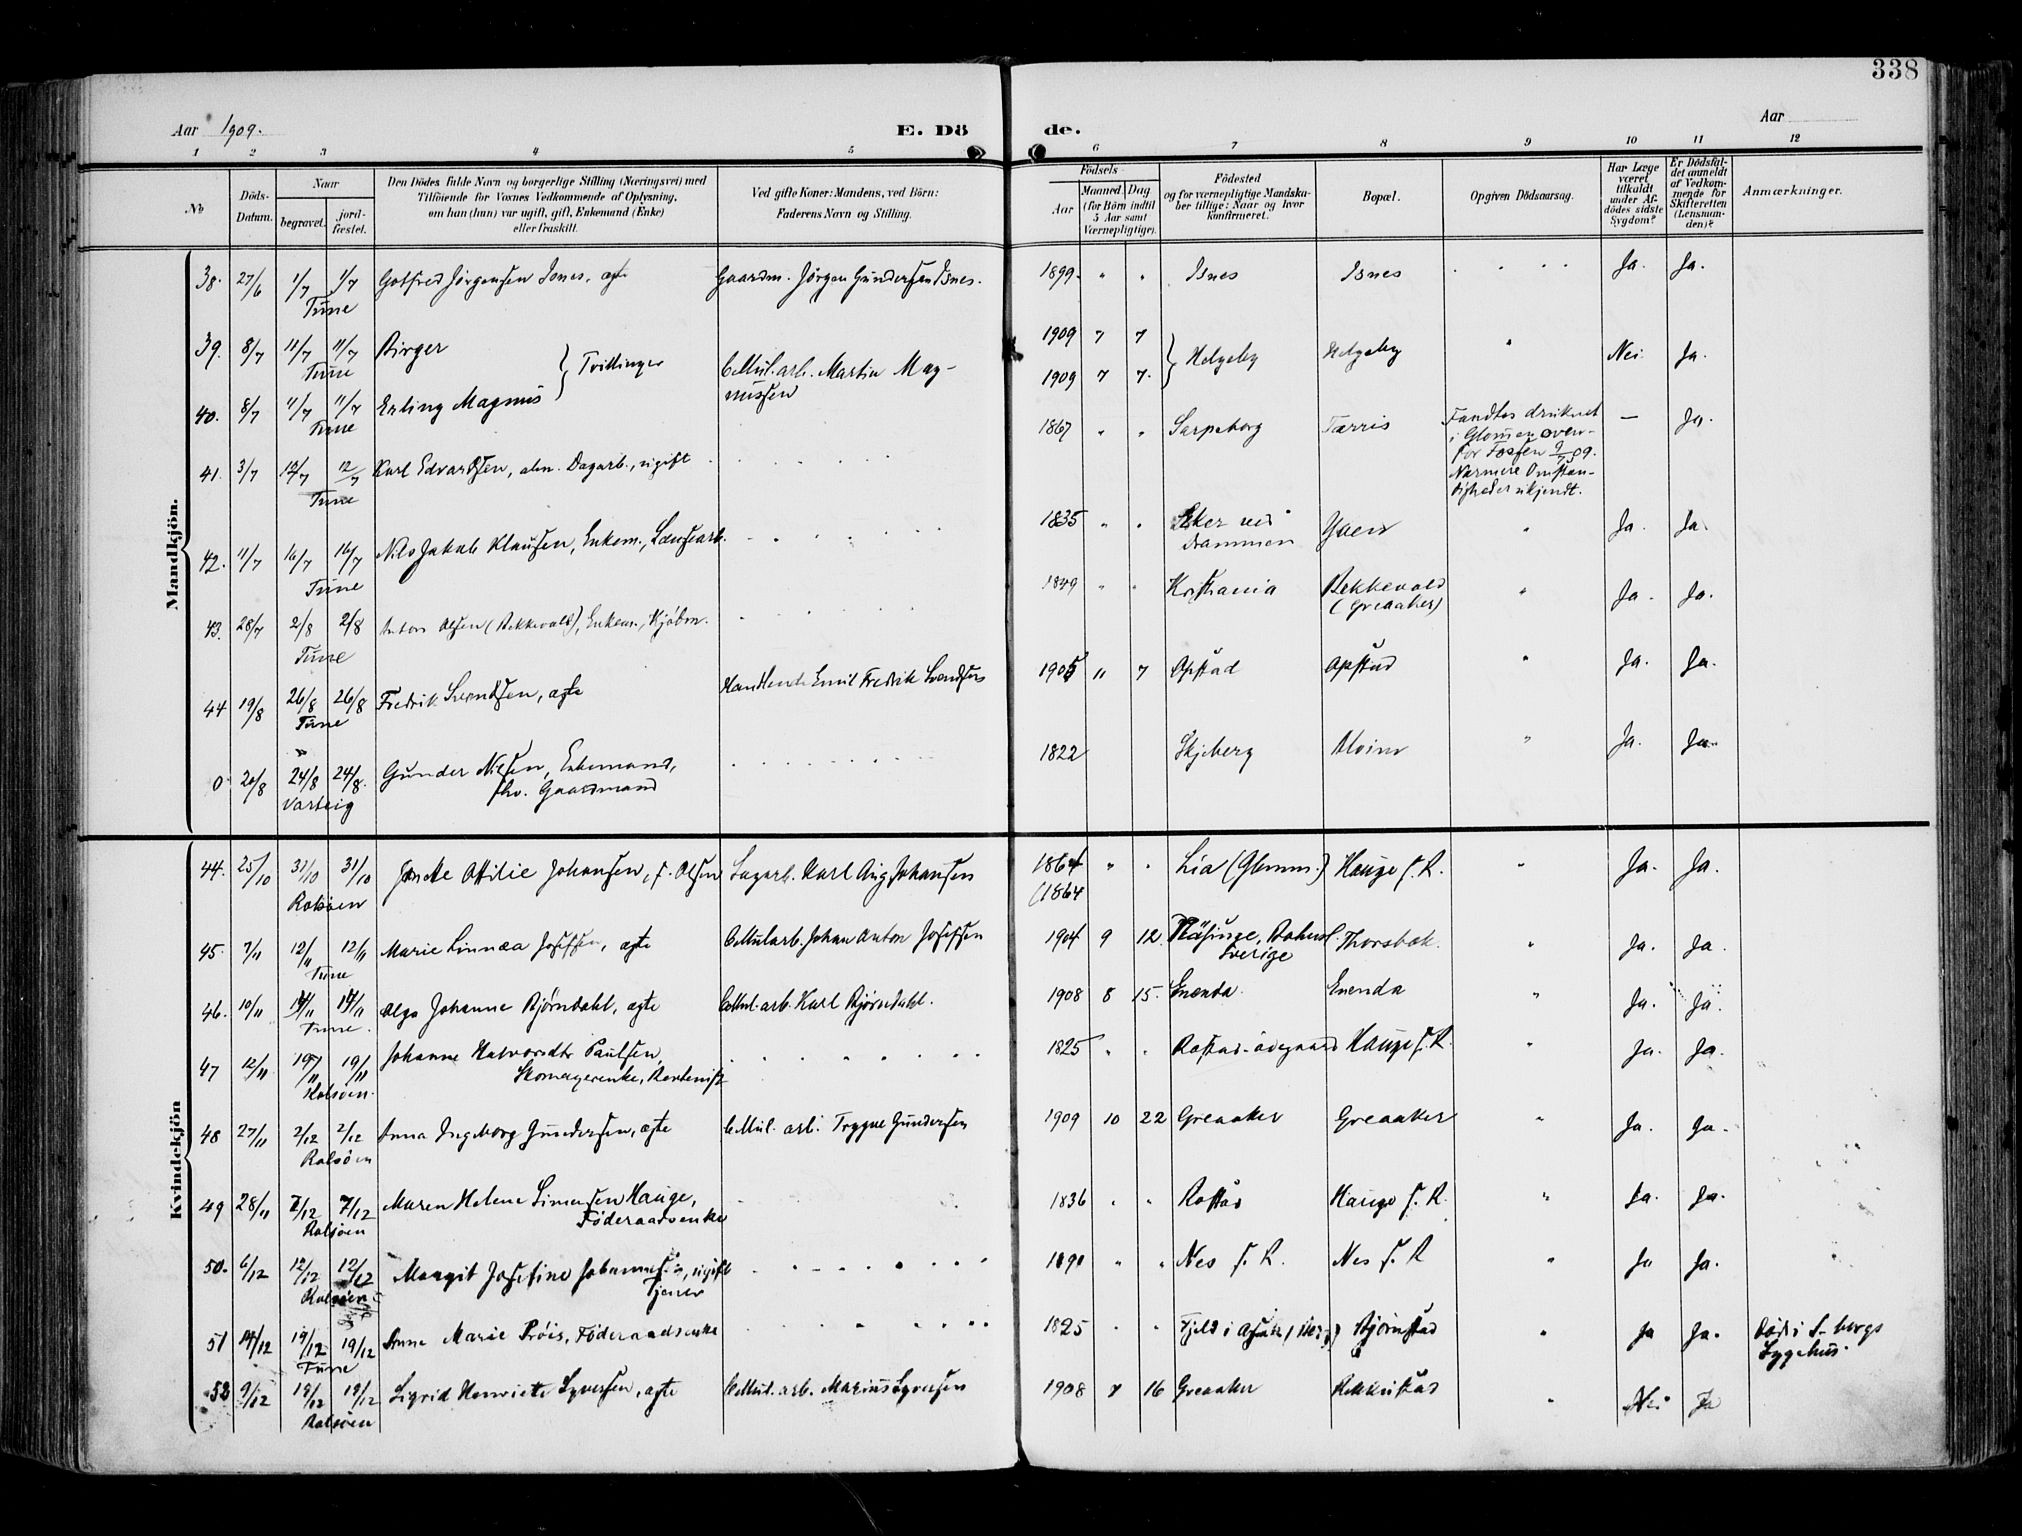 338
Aar 1909.
E. Dö de.
Aar
1 2 3 4 5 6 7 8 9 10 11 12
No
Döds-Datum.
Naar
begravet.
jord-fæstet.
Den Dödes fulde Navn og borgerlige Stilling (Næringsvei) med
Tilföiende for Voxnes Vedkommende af Oplysning,
om han (hun) var ugift, gift, Enkemand (Enke)
eller fraskilt.
Ved gifte Koner: Mandens, ved Börn:
Faderens Navn og Stilling.
Födsels-
Aar
Maaned. Dag
(for Börn indtil
5 Aar samt
Værnepligtige).
Födested
og for værnepligtige Mandska-
ber tillige: Naar og hvor
konfirmeret.
Bopæl.
Opgiven Dödsaarsag.
Har Læge
været
tilkaldt
under Af-
dödes sidste
Sygdom?
Er Dödsfal-
det anmeldt
af Vedkom-
mende for
Skifteretten
(Lensman-
den)?
Anmærkninger.
Mandkjön.
38. 27/6 1/7 1/7 Gotfred Jørgensen Isnes, ægte Gaardm. Jörgen Gundersen Isnes. 1899. " " Isnes Isnes Ja. Ja.
Tune
39. 8/7 11/7 11/7 Birger 1909 7 7 Helgeby Helgeby " Nei. Ja.
Tune } Tvillinger Cellul. arb. Martin Mag-
40. 8/7 11/7 11/7 Erling Magnus nussen 1909 7 7.
Tune
41. 3/7 12/7 12/7 Karl Edvardsen, alm. Dagarb., ugift 1867 " " Sarpsborg Tærris Fandtes druknet — Ja.
Tune i Glommen oven-
for Fossen 9/7 09.
Nærmere Omstæn-
digheder ukjendt.
42. 11/7 16/7 16/7 Nils Jakob Klausen, Enkem., Lænsearb. 1835 " " Eker ved Drammen Yven " Ja. Ja.
Tune
43. 28/7 2/8 2/8 Anton Olsen (Bekkevold), Enkem., Kjøbm. 1849 " " Kristiania Bekkevold (Greaaker) " Ja. Ja.
Tune
44 19/8 26/8 26/8 Fredrik Svendsen, ægte Handlende Emil Fredrik Svendsen 1905 " 7 Opstad Opstad " Ja. Ja.
Tune
0 20/8 24/8 24/8. Gunder Nilsen, Enkemand, fhv. Gaardmand 1822 Skjeberg Alvim " Ja. Ja.
Varteig
Kvindekjön
44. 25/10 31/10 31/10 Josette Otilie Johansen, f. Olsen Sagarb. Karl Aug Johansen 1864 (1864 " " Lia (Glemm.) Hauge S. R. " Ja. Ja.
Rolsöen
45. 7/11 12/11 12/11 Marie Linnæa Josefsen, ægte Cellularb. Johan Anton Josefsen 1904 9 12. Näsinge, Bohusl. Sverige Thorsbæk. " Ja. Ja.
Tune
46. 10/11 14/11 14/11 Olga Johanne Bjørndahl, ægte Cellul. arb. Karl Bjørndahl. 1908 8 15. Enenda. Enenda " Ja. Ja.
Tune.
47 12/11 19/11 19/11 Johanne Halvorsdtr Paulsen, Skomagerenke, 1825 " " Rostad-ödegaard Hauge S. R. " Ja. Ja.
Rolsöen.
48 27/11 2/12 2/12 Anna Ingeborg Gundersen, ægte Cellul. arb. Trygve Gundersen 1909 10 22 Greaaker Greaaker " Ja. Ja.
Rolsöen
49 28/11 7/12 7/12 Maren Helene Simensen Hauge, Föderaadsenke 1836 " " Rostad Hauge S. R. " Ja. Ja.
Rolsöen
50. 6/12 12/12 12/12 Margit Josefine Johannesen, ugift Tjener 1891 " " Nes S. R. Nes S. R " Ja Ja.
Rolsöen
51 14/12 19/12 19/12 Anne Marie Pröis, Föderaadsenke 1825 " " Fjeld i Bjørnstad " Ja Ja. Död i S-borgs Sygehus.
Tune
52 9/12 19/12 19/12 Sigrid Henriette Syversen, ægte Cellul. arb. Marius Syversen 1908 7 16 Greaaker Rekkustad " Nei Ja
Rolsöen